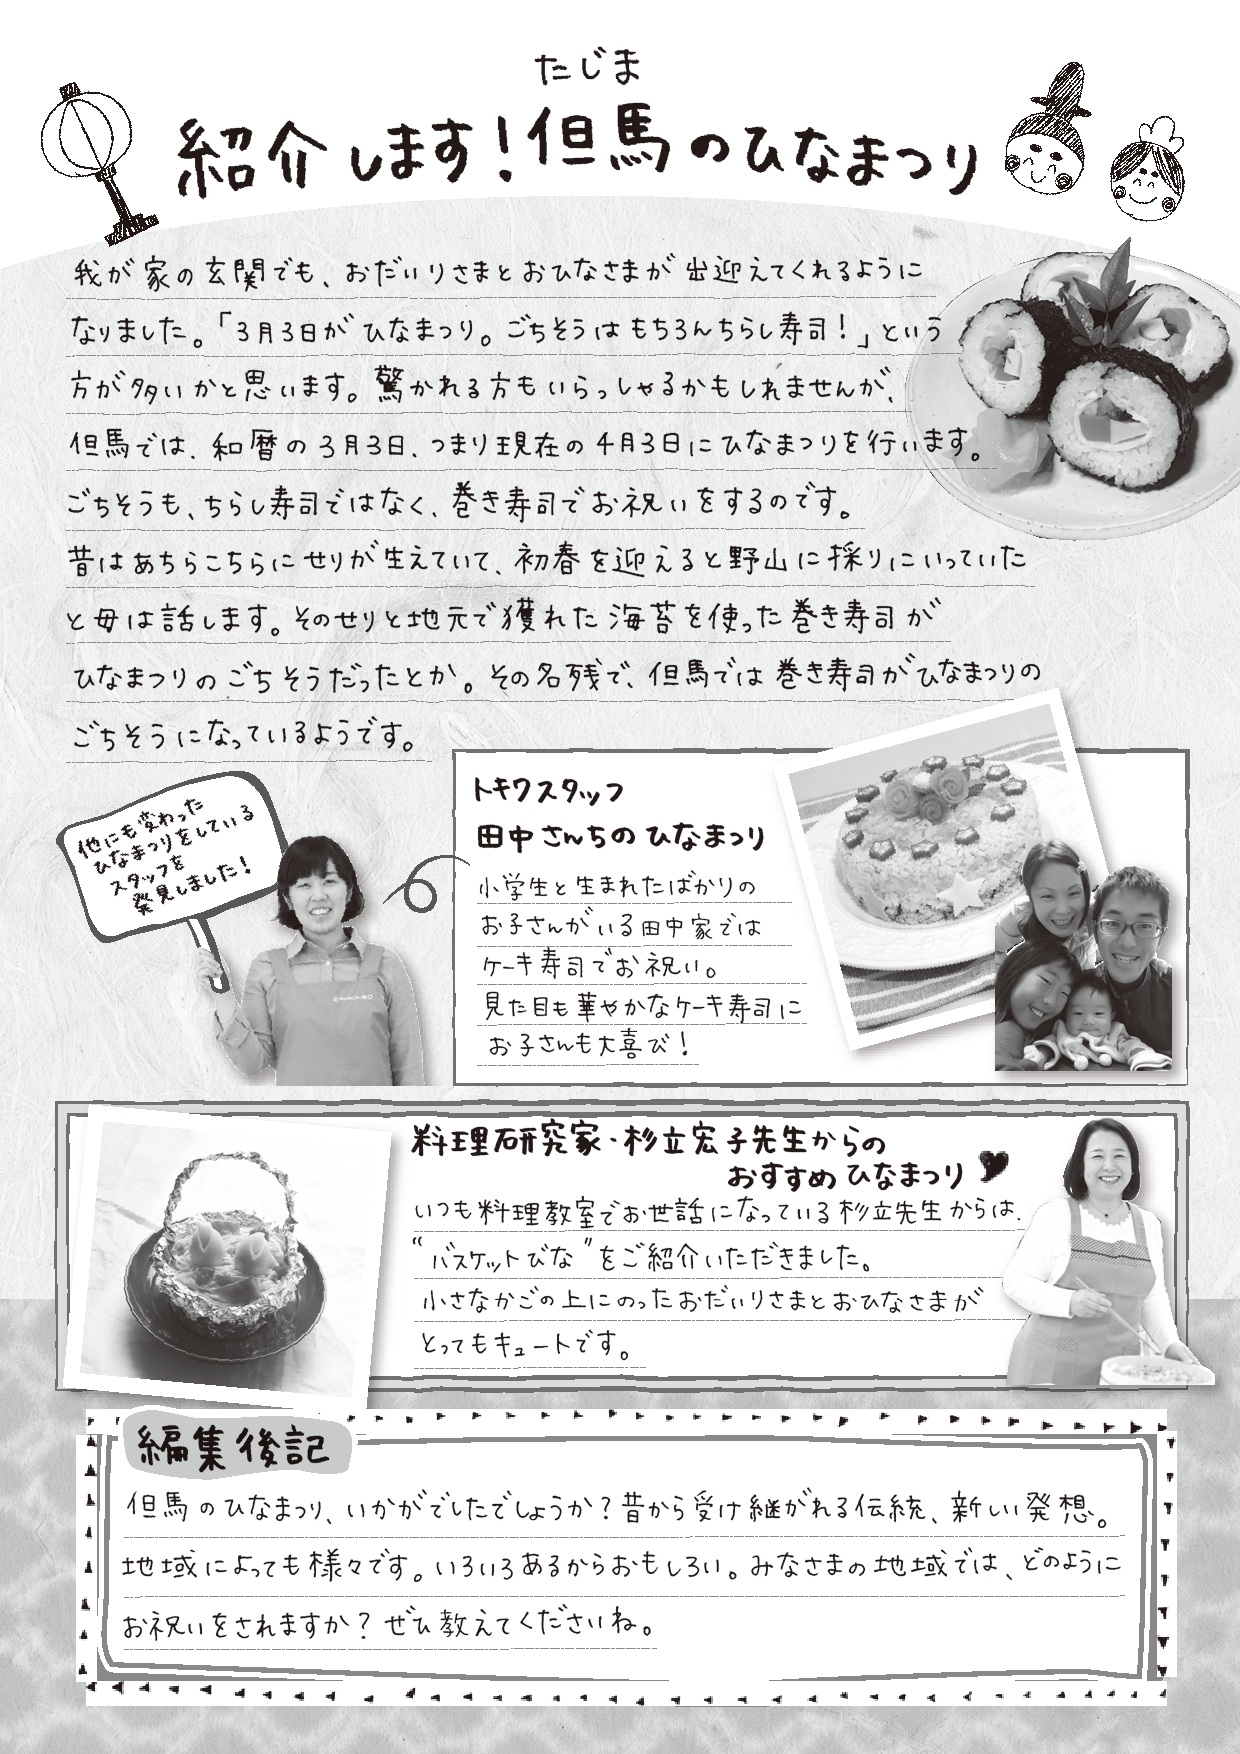 たじま
紹介します！但馬のひなまつり
我が家の玄関でも、おだいりさまとおひなさまが出迎えてくれるように
なりました。「3月3日がひなまつり。ごちそうはもちろんちらし寿司！」という
方が多いかと思います。驚かれる方もいらっしゃるかもしれませんが、
但馬では、和暦の3月3日、つまり現在の4月3日にひなまつりを行います。
ごちそうも、ちらし寿司ではなく、巻き寿司でお祝いをするのです。
昔はあちらこちらにせりが生えていて、初春を迎えると野山に採りにいっていた
と母は話します。そのせりと地元で獲れた海苔を使った巻き寿司が
ひなまつりのごちそうだったとか。その名残で、但馬では巻き寿司がひなまつりの
ごちそうになっているようです。
他にも変わった
ひなまつりをしている
スタッフを
発見しました！
トキワスタッフ
田中さんちのひなまつり
小学生と生まれたばかりの
お子さんがいる田中家では
ケーキ寿司でお祝い。
見た目も華やかなケーキ寿司に
お子さんも大喜び！
料理研究家・杉立宏子先生からの
おすすめひなまつり
いつも料理教室でお世話になっている杉立先生からは、
“バスケットびな”をご紹介いただきました。
小さなかごの上にのったおだいりさまとおひなさまが
とってもキュートです。
編集後記
但馬のひなまつり、いかがでしたでしょうか？昔から受け継がれる伝統、新しい発想。
地域によっても様々です。いろいろあるからおもしろい。みなさまの地域では、どのように
お祝いをされますか？ぜひ教えてくださいね。